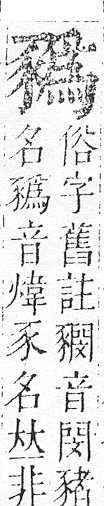 俗字舊註音閔豬
名音煒豕名𠀤非